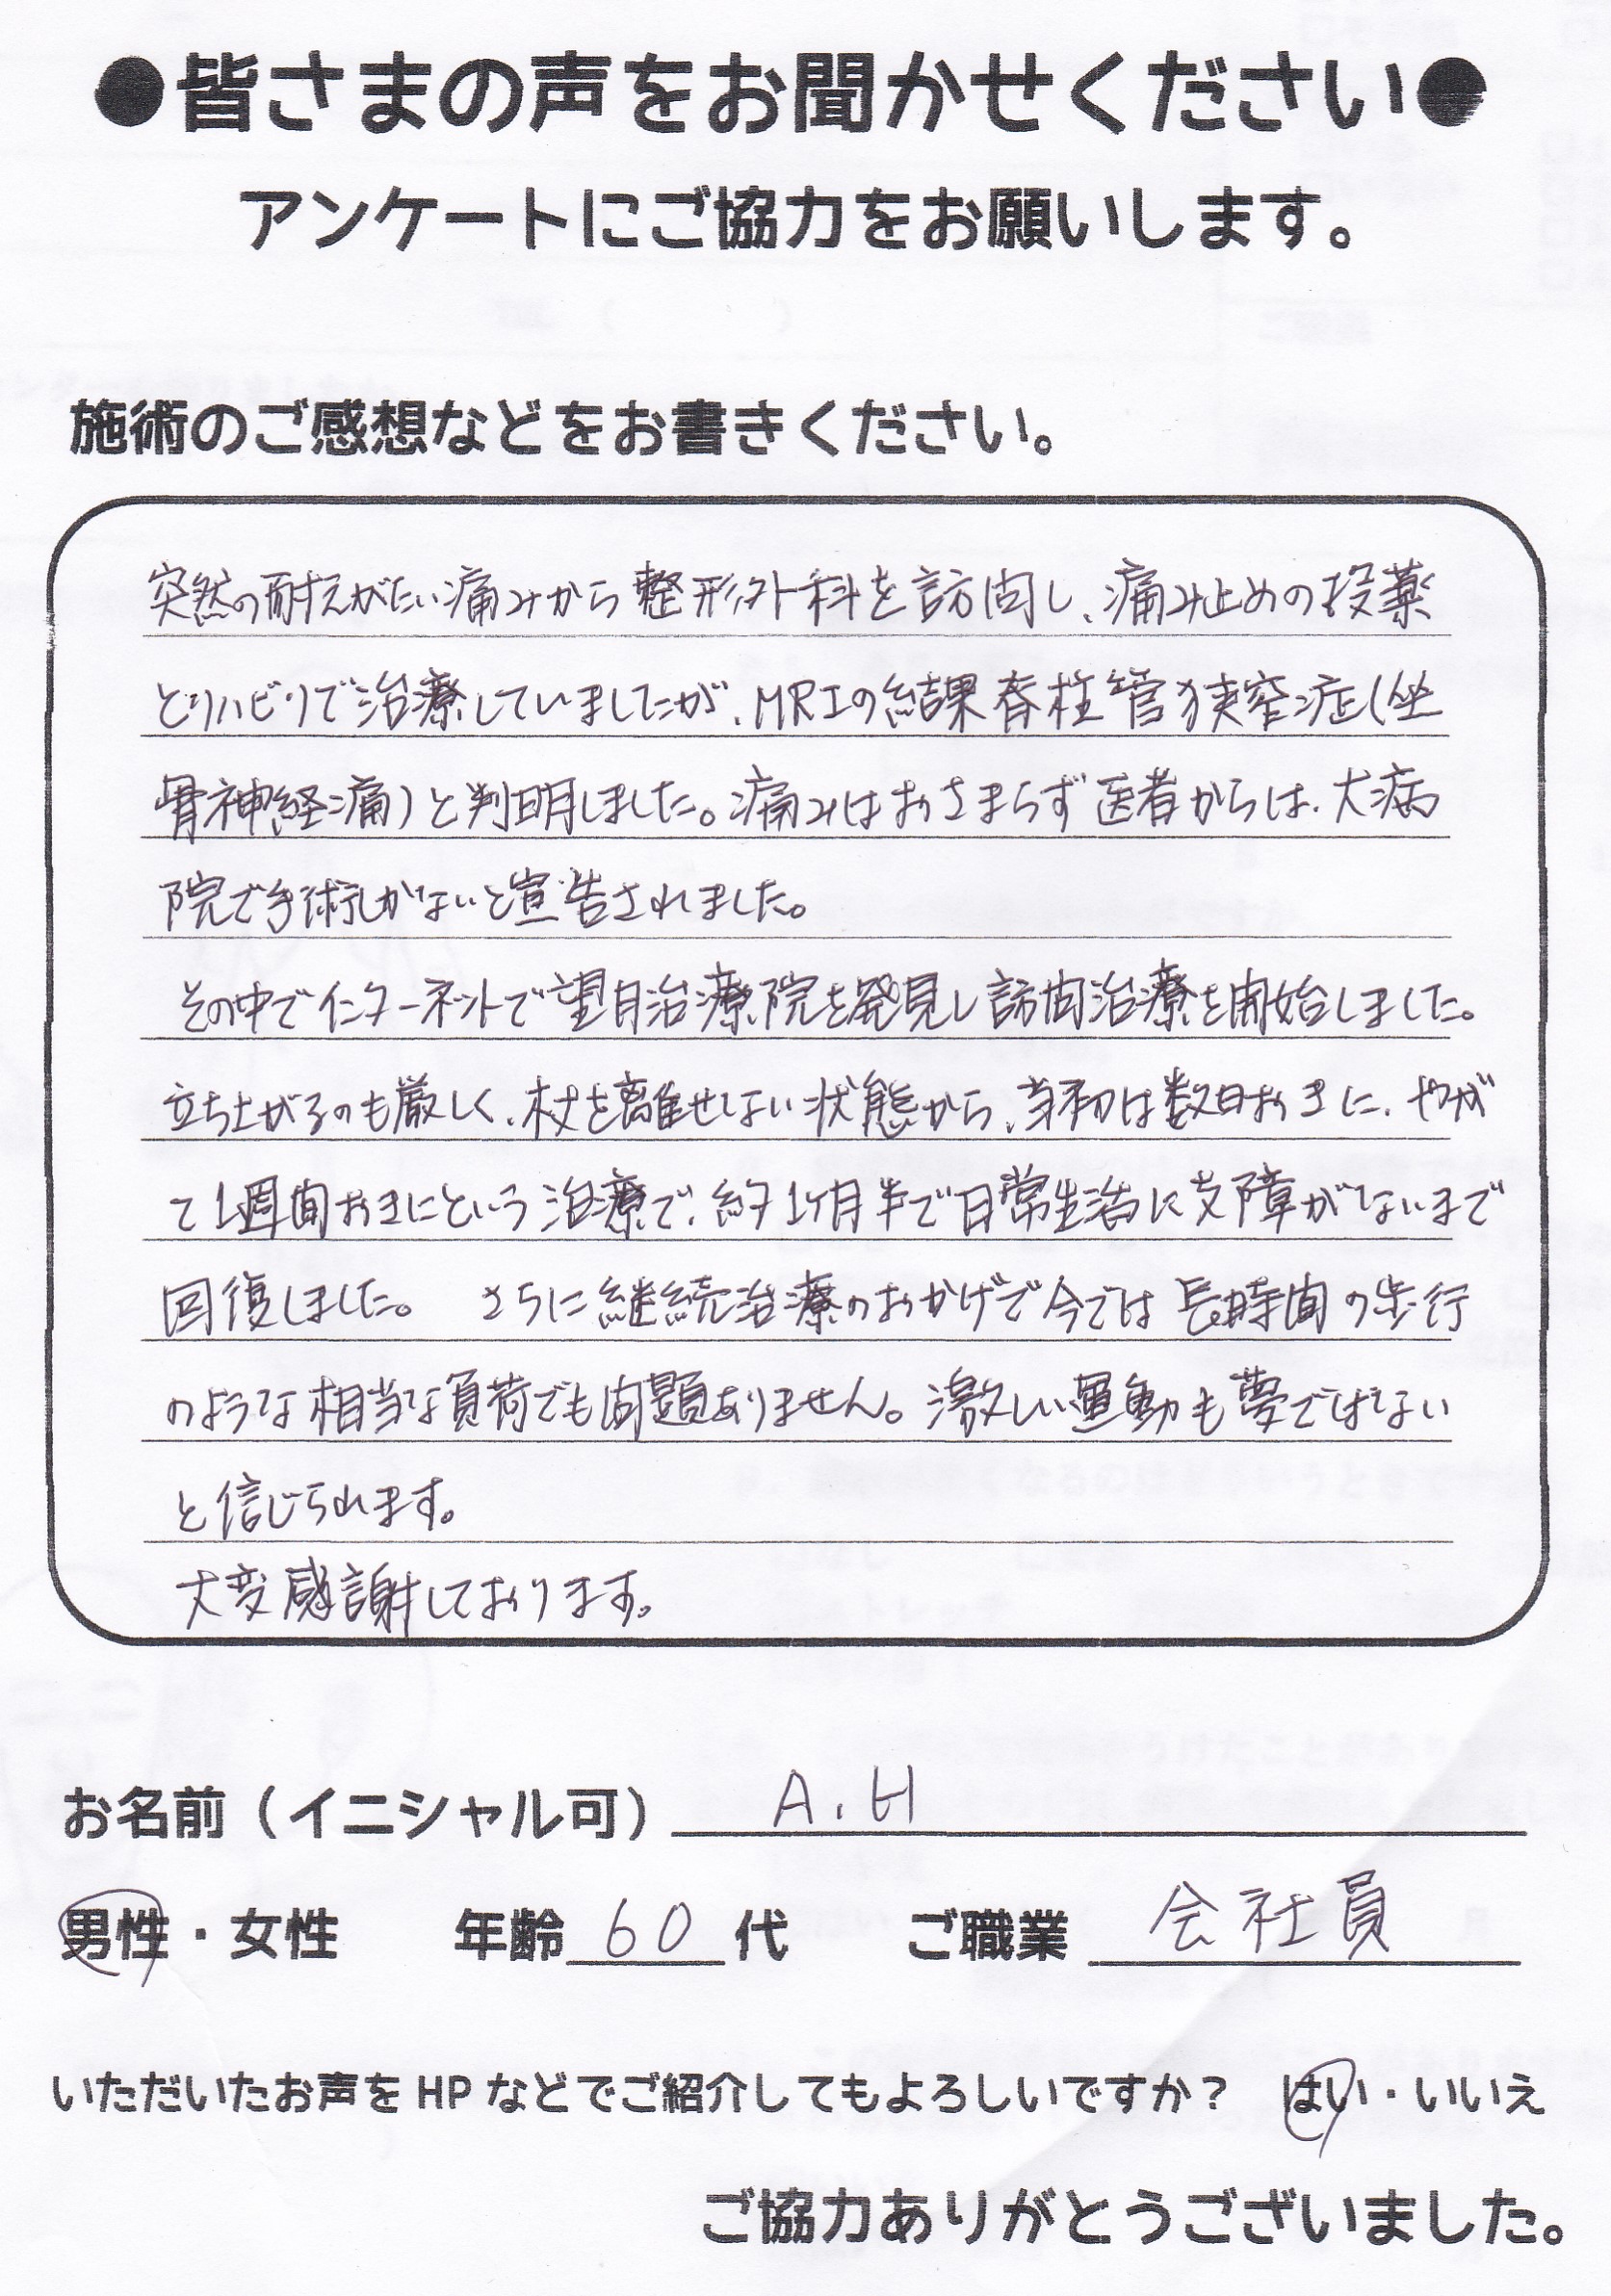 ●皆さまの声をお聞かせください●
アンケートにご協力をお願いします。
施術のご感想などをお書きください。
突然の耐えがたい痛みから整形外科を訪問し、痛み止めの投薬
とリハビリで治療していましたが、MRIの結果脊柱管狭窄症(坐
骨神経痛)と判明しました。痛みはおさまらず医者からは、大病
院で手術しかないと宣告されました。
その中でインターネットで望月治療院を発見し訪問治療を開始しました。
立ち上がるのも厳しく、杖を離せない状態から、当初は数日おきに、やが
て1週間おきにという治療で、約1ヶ月半で日常生活に支障がないまで
回復しました。 さらに継続治療のおかげで今では長時間の歩行
のような相当な負荷でも問題ありません。激しい運動も夢ではない
と信じられます。
大変感謝しております。
お名前(イニシャル可) A.H
男性・女性 年齢 60 代 ご職業 会社員
いただいたお声をHPなどでご紹介してもよろしいですか? はい・いいえ
ご協力ありがとうございました。